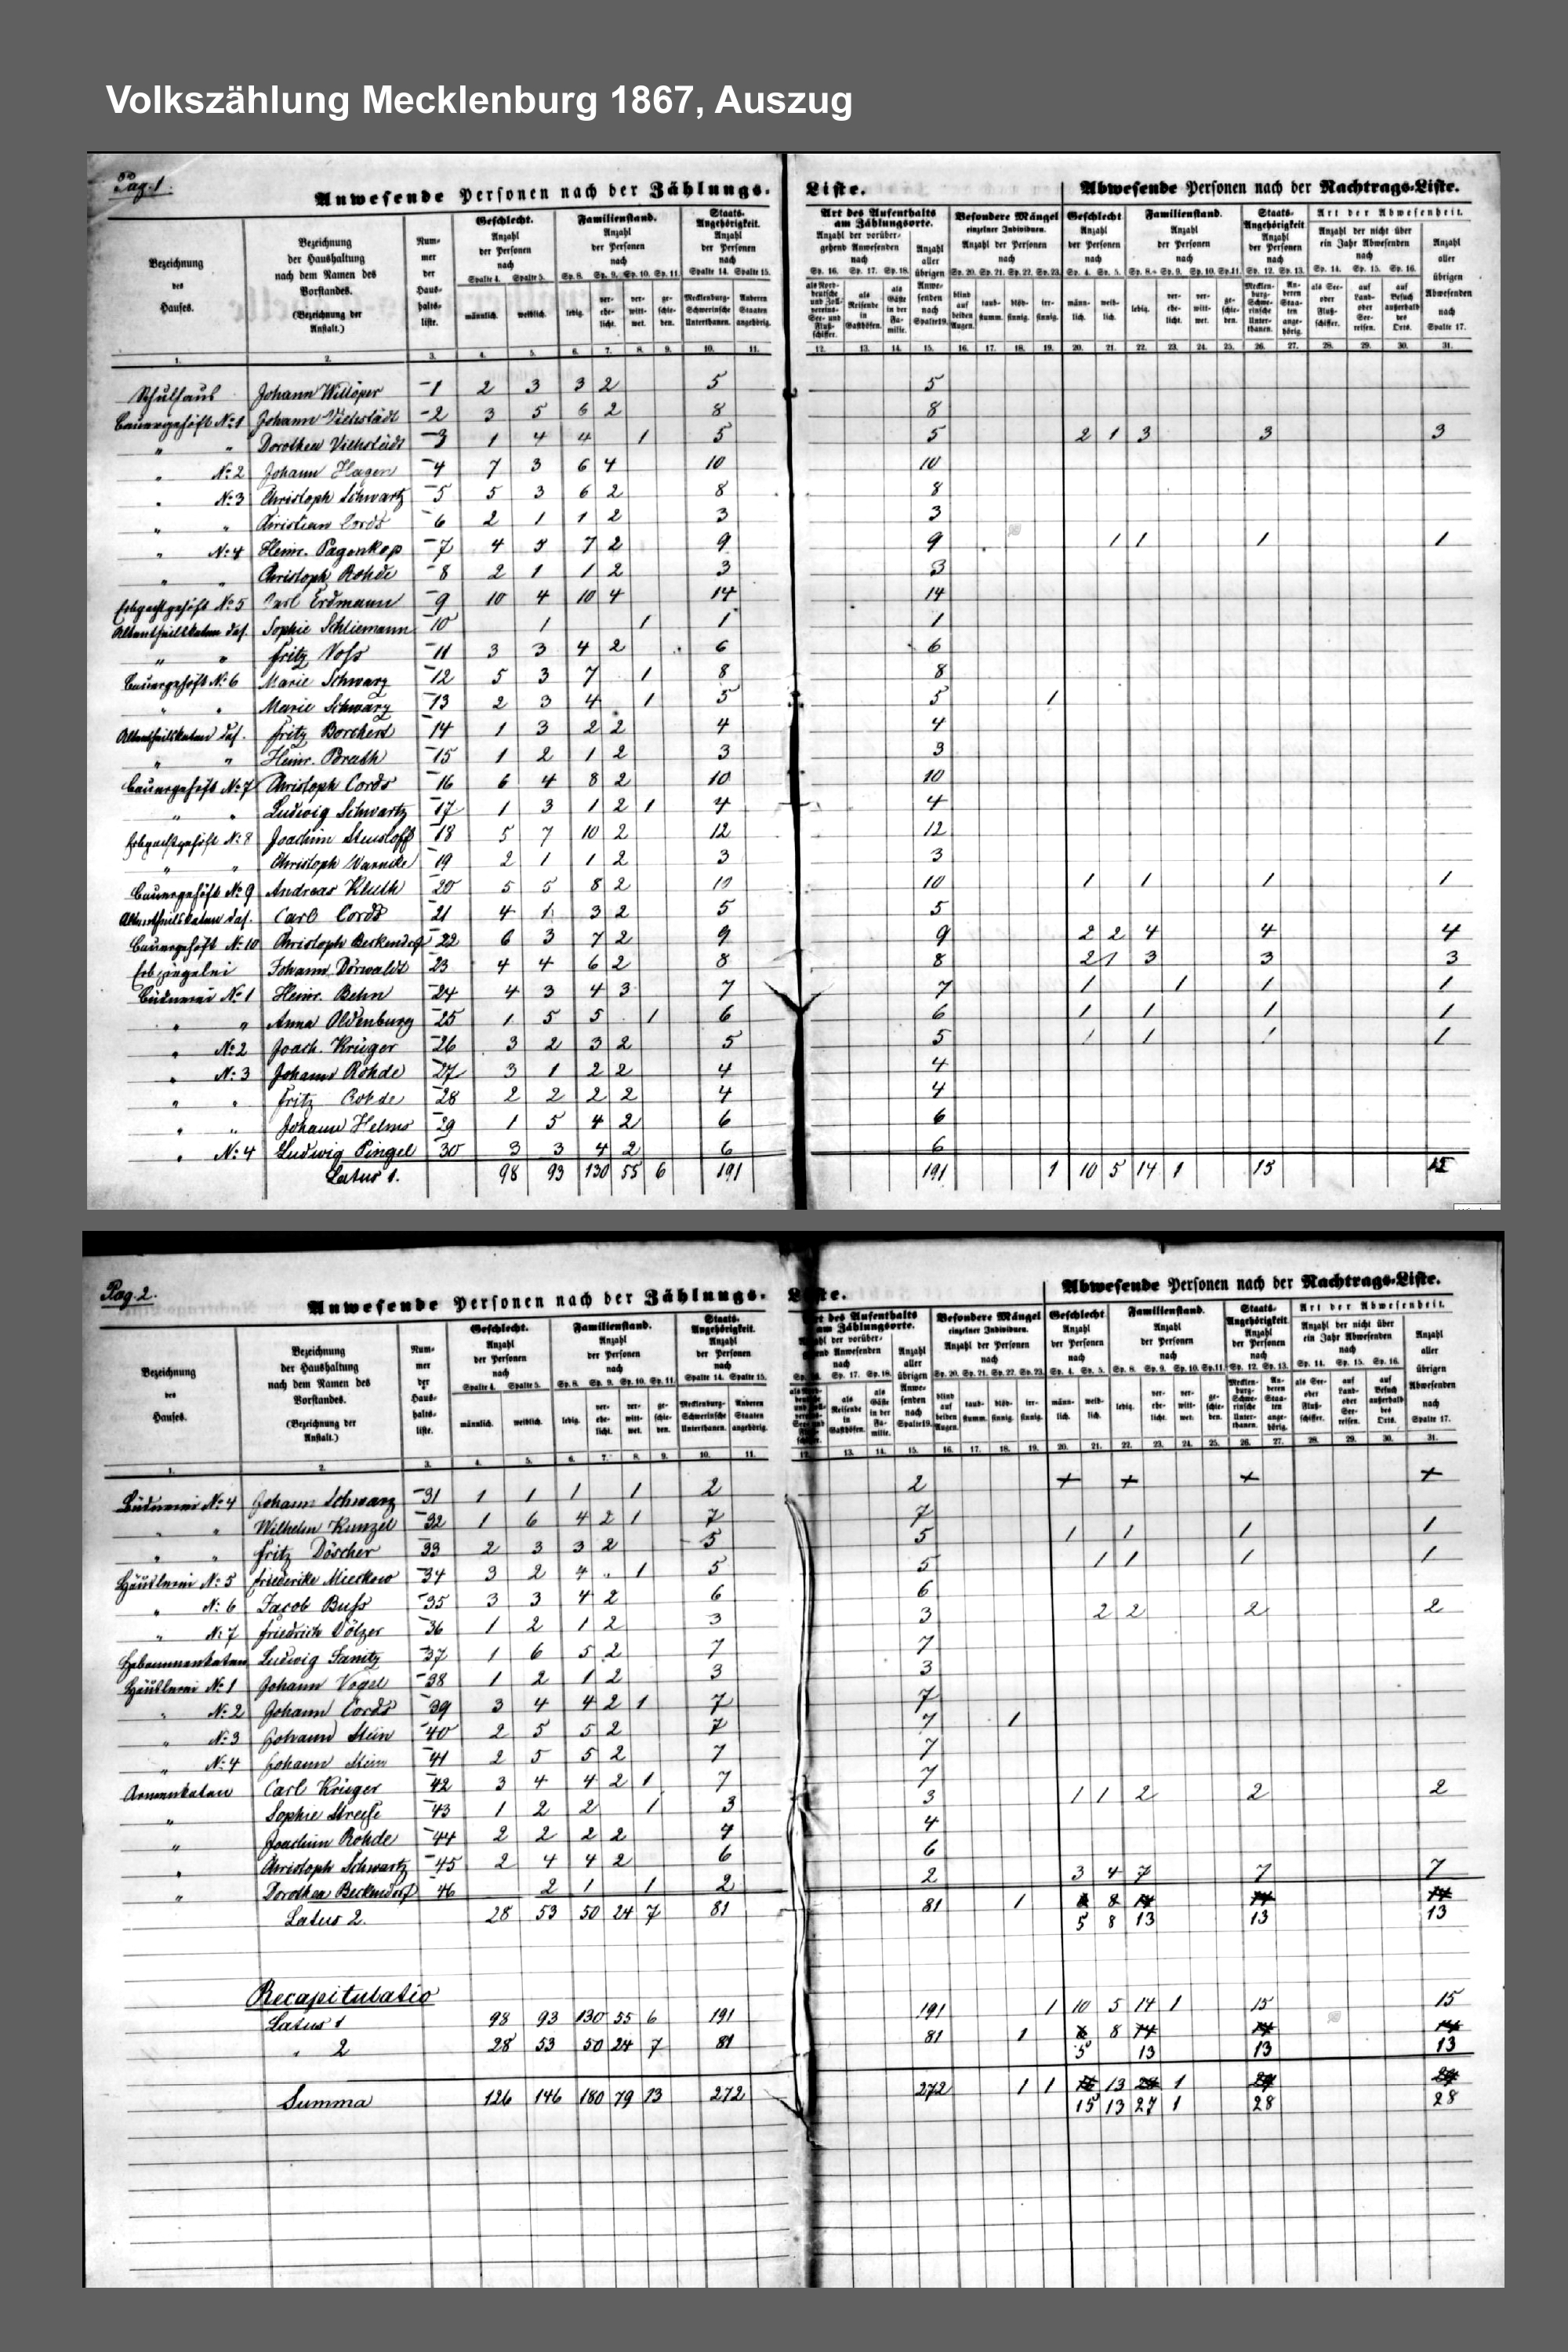 Volkszählung Mecklenburg 1867, Auszug
Pag. 1.
Anwesende Personen nach der Zählungs-Liste.
Abwesende Personen nach der Nachtrags-Liste.
Bezeichnung des Hauses.
Bezeichnung der Haushaltung nach dem Namen des Vorstandes. (Bezeichnung der Anstalt.)
Nummer der Haushalts-liste.
Geschlecht. Anzahl der Personen nach Spalte 4. Spalte 5. männlich. weiblich.
Familienstand. Anzahl der Personen nach Sp. 8. Sp. 9. Sp. 10. Sp. 11. ledig. verehelicht. verwittwet. geschieden.
Staats-Angehörigkeit. Anzahl der Personen nach Spalte 14. Spalte 15. Mecklenburg-Schwerinsche Unterthanen. Anderen Staaten angehörig.
Art des Aufenthalts am Zählungsorte.
Besondere Mängel einzelner Individuen.
Art der Abwesenheit.
1. 2. 3. 4. 5. 6. 7. 8. 9. 10. 11. 12. 13. 14. 15. 16. 17. 18. 19. 20. 21. 22. 23. 24. 25. 26. 27. 28. 29. 30. 31.
Schulhaus Johann Willöper 1 2 3 3 2 5 5
Bauergehöft No 1 Johann Viehstädt 2 3 5 6 2 8 8
" " Dorothea Viehstädt 3 1 4 4 1 5 5 2 1 3 3 3
" No 2 Johann Hagen 4 7 3 6 4 10 10
" No 3 Christoph Schwartz 5 5 3 6 2 8 8
" " Christian Cords 6 2 1 1 2 3 3
" No 4 Heinr. Pagenkop 7 4 5 7 2 9 9 1 1 1 1
" " Christoph Rohde 8 2 1 1 2 3 3
Erbpachtgehöft No 5 Carl Erdmann 9 10 4 10 4 14 14
Altentheilskaten das. Sophie Schliemann 10 1 1 1 1
" " Fritz Voss 11 3 3 4 2 6 6
Bauergehöft No 6 Marie Schwarz 12 5 3 7 1 8 8
" " Marie Schwarz 13 2 3 4 1 5 5 1
Altentheilskaten das. Fritz Borchert 14 1 3 2 2 4 4
" " Heinr. Brath 15 1 2 1 2 3 3
Bauergehöft No 7 Christoph Cords 16 6 4 8 2 10 10
" " Ludwig Schwartz 17 1 3 1 2 1 4 4
Erbpachtgehöft No 8 Joachim Stusloff 18 5 7 10 2 12 12
" " Christoph Warncke 19 2 1 1 2 3 3
Bauergehöft No 9 Andreas Kluth 20 5 5 8 2 10 10 1 1 1 1
Altentheilskaten das. Carl Cords 21 4 1 3 2 5 5
Bauergehöft No 10 Christoph Beckendorf 22 6 3 7 2 9 9 2 2 4 4 4
Erbziegelei Johann Dörwaldt 23 4 4 6 2 8 8 2 1 3 3 3
Büdnerei No 1 Heinr. Behn 24 4 3 4 3 7 7 1 1 1 1
" " Anna Oldenburg 25 1 5 5 1 6 6 1 1 1 1
" No 2 Joach. Krüger 26 3 2 3 2 5 5 1 1 1 1
" No 3 Johann Rohde 27 3 1 2 2 4 4
" " Fritz Rohde 28 2 2 2 2 4 4
" " Johann Helms 29 1 5 4 2 6 6
" No 4 Ludwig Pingel 30 3 3 4 2 6 6
Latus 1. 98 93 130 55 6 191 191 1 10 5 14 1 15 15
Pag. 2.
Anwesende Personen nach der Zählungs-Liste.
Abwesende Personen nach der Nachtrags-Liste.
Büdnerei No 4 Johann Schwarz 31 1 1 1 1 2 2
" " Wilhelm Kunzel 32 1 6 4 2 1 7 7
" " Fritz Döscher 33 2 3 3 2 5 5 1 1 1 1
Häuslerei No 5 Friederike Mierkow 34 3 2 4 1 5 5 1 1 1 1
" No 6 Jacob Buss 35 3 3 4 2 6 6
" No 7 Friedrich Völzer 36 1 2 1 2 3 3 2 2 2 2
Hebammenkaten Ludwig Sanitz 37 1 6 5 2 7 7
Häuslerei No 1 Johann Vogel 38 1 2 1 2 3 3
" No 2 Johann Cords 39 3 4 4 2 1 7 7
" No 3 Johann Stein 40 2 5 5 2 7 7 1
" No 4 Johann Stein 41 2 5 5 2 7 7
Armenkaten Carl Krüger 42 3 4 4 2 1 7 7
" Sophie Streese 43 1 2 2 1 3 3 1 1 2 2 2
" Joachim Rohde 44 2 2 2 2 4 4
" Christoph Schwartz 45 2 4 4 2 6 6
" Dorothea Beckendorf 46 2 1 1 2 2 3 4 7 7 7
Latus 2. 28 53 50 24 7 81 81 1 6 8 14 14 14
5 8 13 13 13
Recapitulatio
Latus 1 98 93 130 55 6 191 191 1 10 5 14 1 15 15
" 2 28 53 50 24 7 81 81 1 6 8 14 14 14
5 13 13 13
Summa 126 146 180 79 13 272 272 1 1 16 13 28 1 29 29
15 13 27 1 28 28